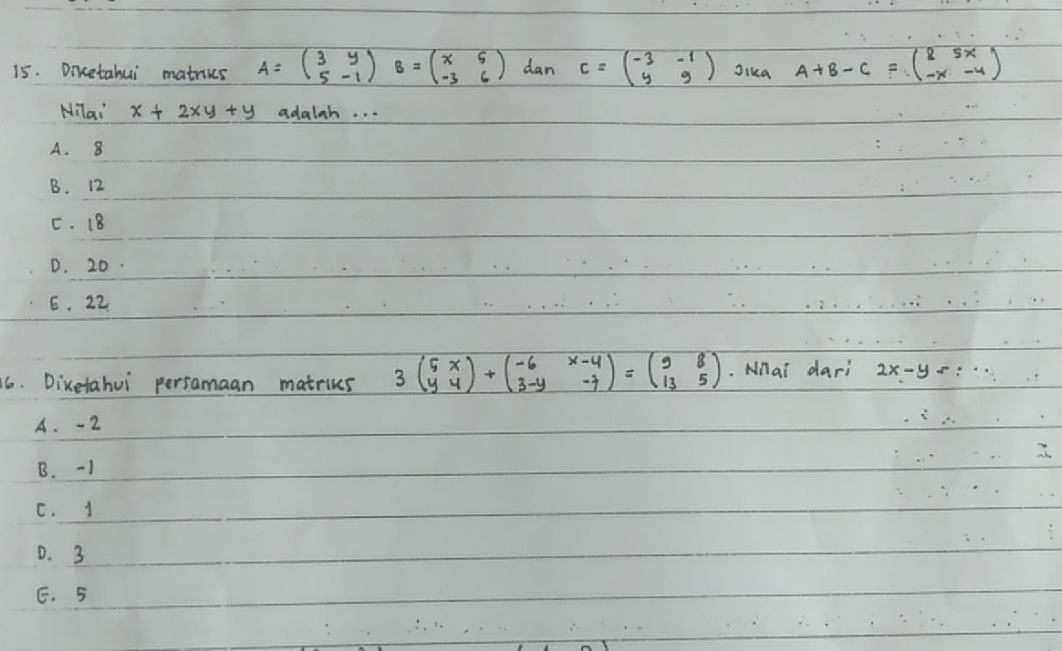 15. Diketahui matriks A = (3 y / 5 -1) B = (x 5 / -3 6) dan C = (-3 -1 / y 9) Jika A+B-C = (8 5x / -x -4)
Nilai x + 2xy + y adalah ...
A. 8
B. 12
C. 18
D. 20
E. 22
16. Diketahui persamaan matriks 3 (5 x / y 4) + (-6 x-4 / 3-y -7) = (9 8 / 13 5). Nilai dari 2x-y = ...
A. -2
B. -1
C. 1
D. 3
E. 5